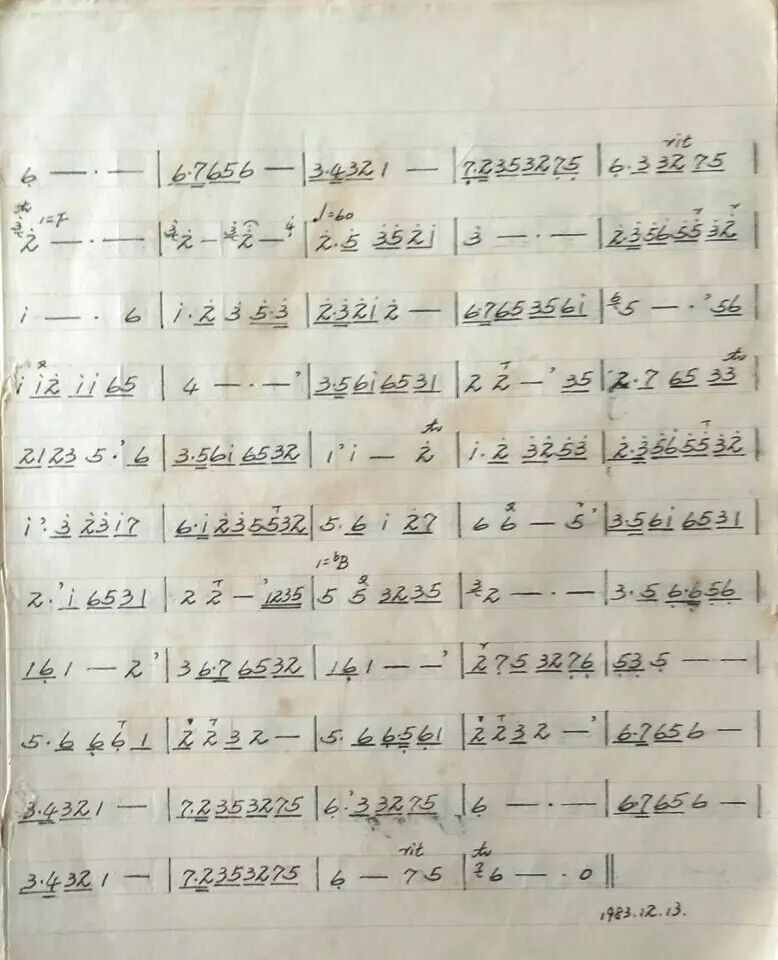 rit
6 — · — | 6·7656 — | 3·4321 — | 7·2353275 | 6·3 32 75 |
tr 1=F ♩=60
3 2 — · — | 3 2 — 3 2 — 4 | 2·5 3521 | 3 — · — | 2·3565532 |
1 — · 6 | 1·2 3 5·3 | 2·3212 — | 67653561 | 6 5 — · ’ 56 |
1 12 11 65 | 4 — · — ’ | 3·5616531 | 2 2 — ’ 35 | 2·7 65 33 tr |
2123 5·’6 | 3·561 6532 | 1 ’ 1 — 2 tr | 1·2 3253 | 2·3565532 |
1 ’·3 2317 | 6·1235532 | 5·6 1 27 | 6 6 — 5 ’ | 3·561 6531 |
1=♭B
2·’1 6531 | 2 2 — ’ 1235 | 5 5 3235 | 3 2 — · — | 3·5 6·656 |
161 — 2 ’ | 3 6·7 6532 | 161 — — ’ | 2 75 3276 | 53 5 — — |
5·6 66 1 | 2 2 3 2 — | 5· 6 6561 | 2 2 3 2 — ’ | 6·7656 — |
3·4321 — | 7·2353275 | 6·’3 3275 | 6 — · — | 6·7656 — |
rit tr
3·4321 — | 7·2353275 | 6 — 75 | 6 — · 0 ‖
1983.12.13.